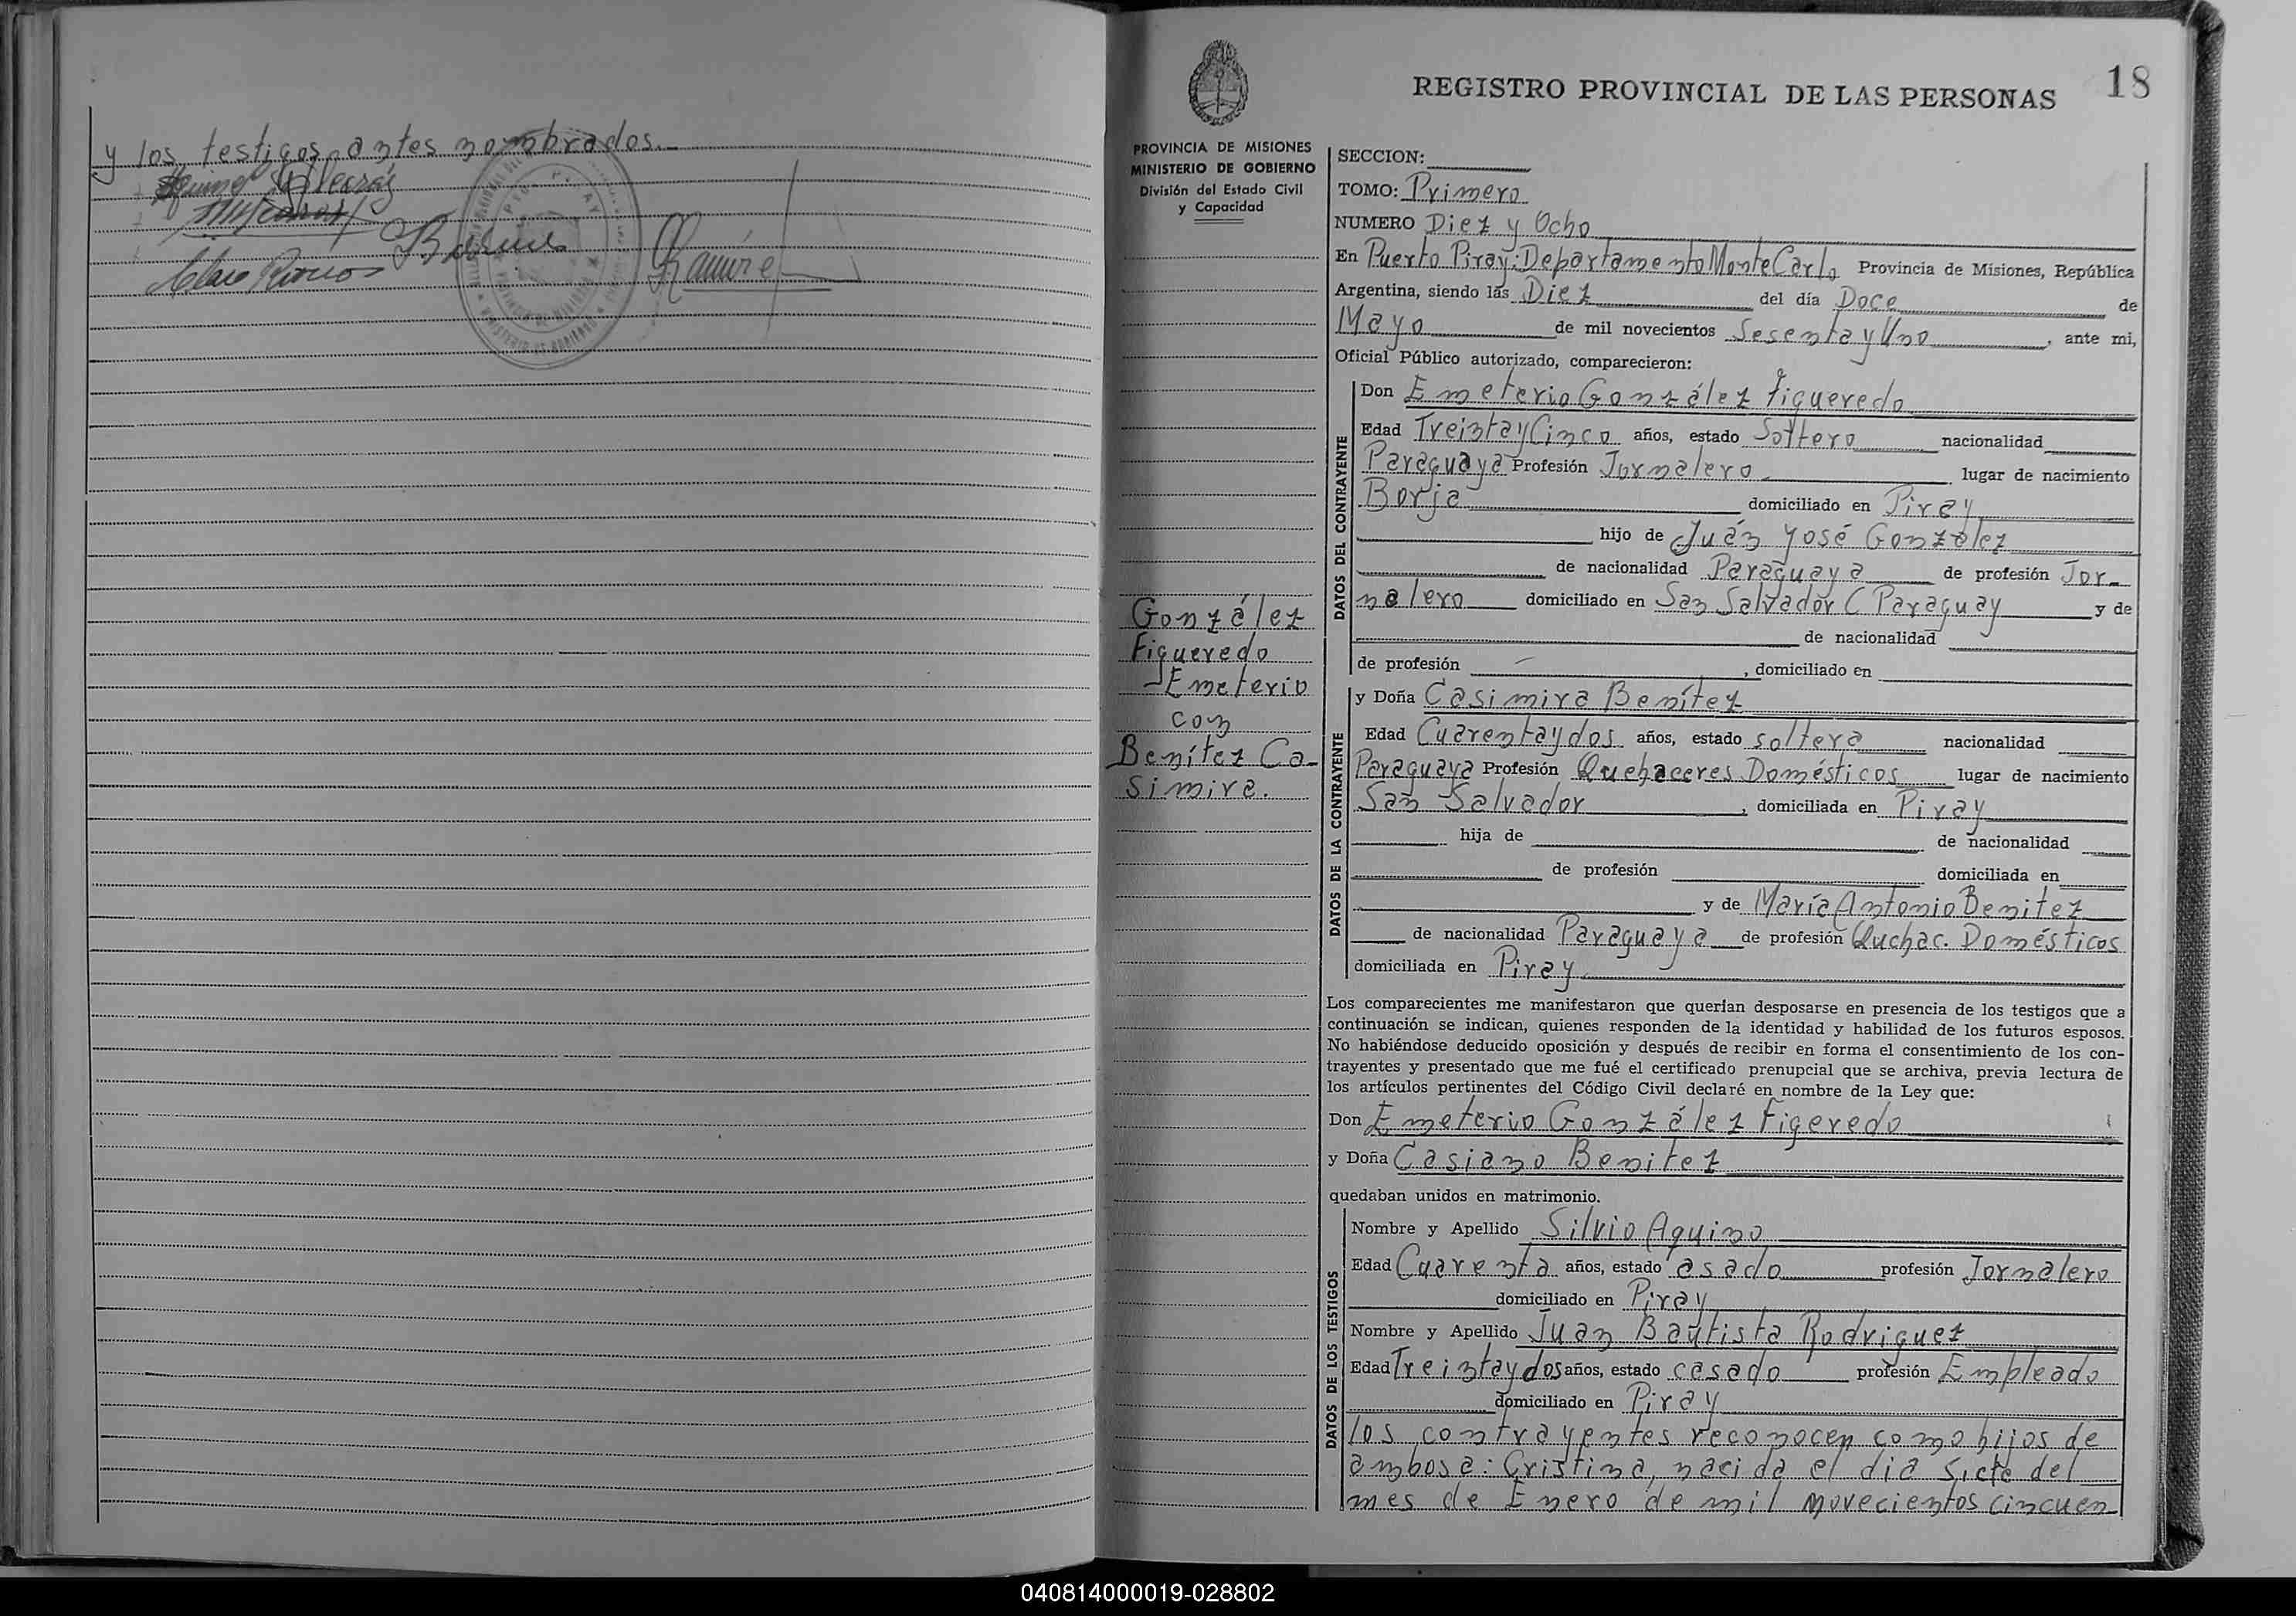 y los testigos antes nombrados.-
Ramírez
REGISTRO PROVINCIAL DE LAS PERSONAS
18
PROVINCIA DE MISIONES
MINISTERIO DE GOBIERNO
División del Estado Civil
y Capacidad
González
Figueredo
Emeterio
con
Benítez Ca-
simira.
SECCION:
TOMO: Primero
NUMERO Diez y Ocho
En Puerto Piray: Departamento Monte Carlo Provincia de Misiones, República
Argentina, siendo las Diez del día Doce de
Mayo de mil novecientos Sesenta y Uno, ante mi,
Oficial Público autorizado, comparecieron:
DATOS DEL CONTRAYENTE
Don Emeterio González Figueredo
Edad Treinta y Cinco años, estado Soltero nacionalidad
Paraguaya Profesión Jornalero lugar de nacimiento
Borja domiciliado en Piray
hijo de Juán José González
de nacionalidad Paraguaya de profesión Jor-
nalero domiciliado en San Salvador ( Paraguay y de
de nacionalidad
de profesión , domiciliado en
DATOS DE LA CONTRAYENTE
y Doña Casimira Benítez
Edad Cuarenta y dos años, estado soltera nacionalidad
Paraguaya Profesión Quehaceres Domésticos lugar de nacimiento
San Salvador , domiciliada en Piray
hija de de nacionalidad
de profesión domiciliada en
y de María Antonio Benitez
de nacionalidad Paraguaya de profesión Quehac. Domésticos
domiciliada en Piray
Los comparecientes me manifestaron que querían desposarse en presencia de los testigos que a
continuación se indican, quienes responden de la identidad y habilidad de los futuros esposos.
No habiéndose deducido oposición y después de recibir en forma el consentimiento de los con-
trayentes y presentado que me fué el certificado prenupcial que se archiva, previa lectura de
los artículos pertinentes del Código Civil declaré en nombre de la Ley que:
Don Emeterio González Figeredo
y Doña Casiano Benitez
quedaban unidos en matrimonio.
DATOS DE LOS TESTIGOS
Nombre y Apellido Silvio Aquino
Edad Cuarenta años, estado asado profesión Jornalero
domiciliado en Piray
Nombre y Apellido Juan Bautista Rodriguez
Edad Treinta y dos años, estado casado profesión Empleado
domiciliado en Piray
los contrayentes reconocen como hijos de
ambos a: Cristina, nacida el dia siete del
mes de Enero de mil novecientos cincuen
040814000019-028802